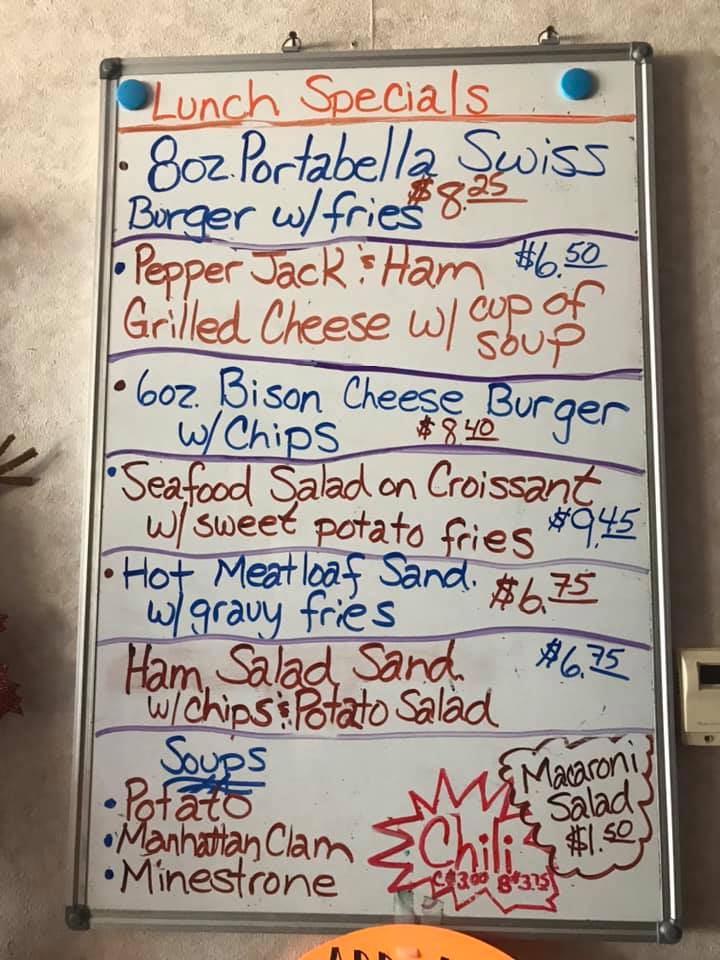 Lunch Specials
• 8oz. Portabella Swiss
Burger w/fries $8.25
• Pepper Jack & Ham $6.50
Grilled Cheese w/ cup of
soup
• 6oz. Bison Cheese Burger
w/Chips $8.40
• Seafood Salad on Croissant
w/ sweet potato fries $9.45
• Hot Meatloaf Sand. $6.75
w/gravy fries
Ham Salad Sand. $6.75
w/chips & Potato Salad
Soups
• Potato
• Manhattan Clam
• Minestrone
Chili
C $3.00 B $3.75
Macaroni
Salad
$1.50